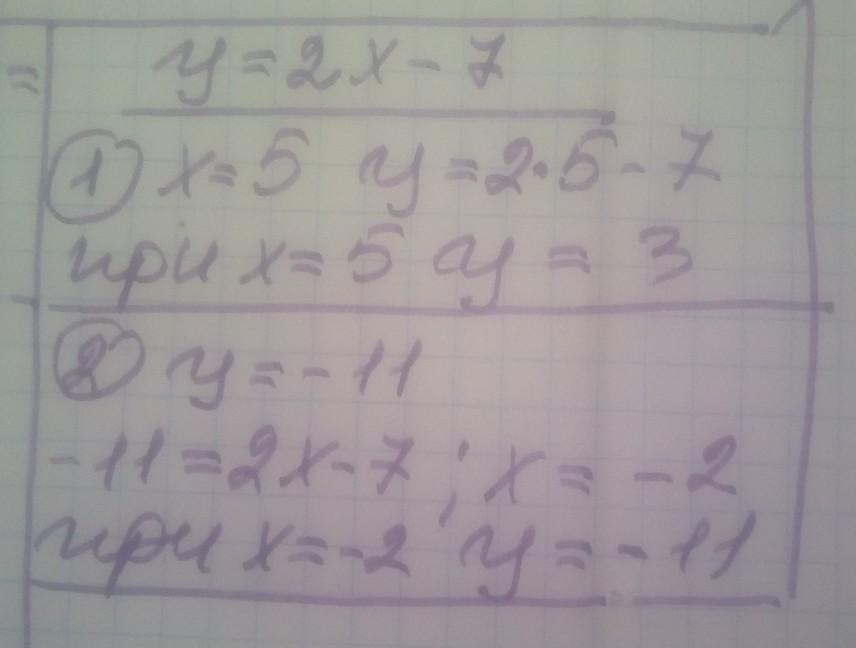 = y = 2x - 7
① x = 5 y = 2·5 - 7
при x = 5 y = 3
② y = - 11
-11 = 2x - 7 ; x = - 2
при x = -2 y = - 11